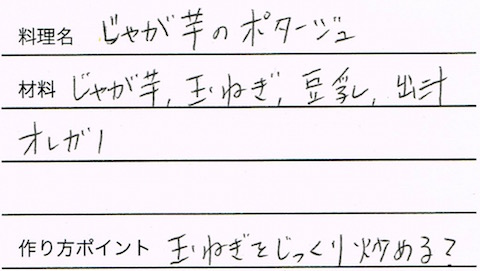 料理名 じゃが芋のポタージュ
材料 じゃが芋, 玉ねぎ, 豆乳, 出汁
オレガノ
作り方ポイント 玉ねぎをじっくり炒める?